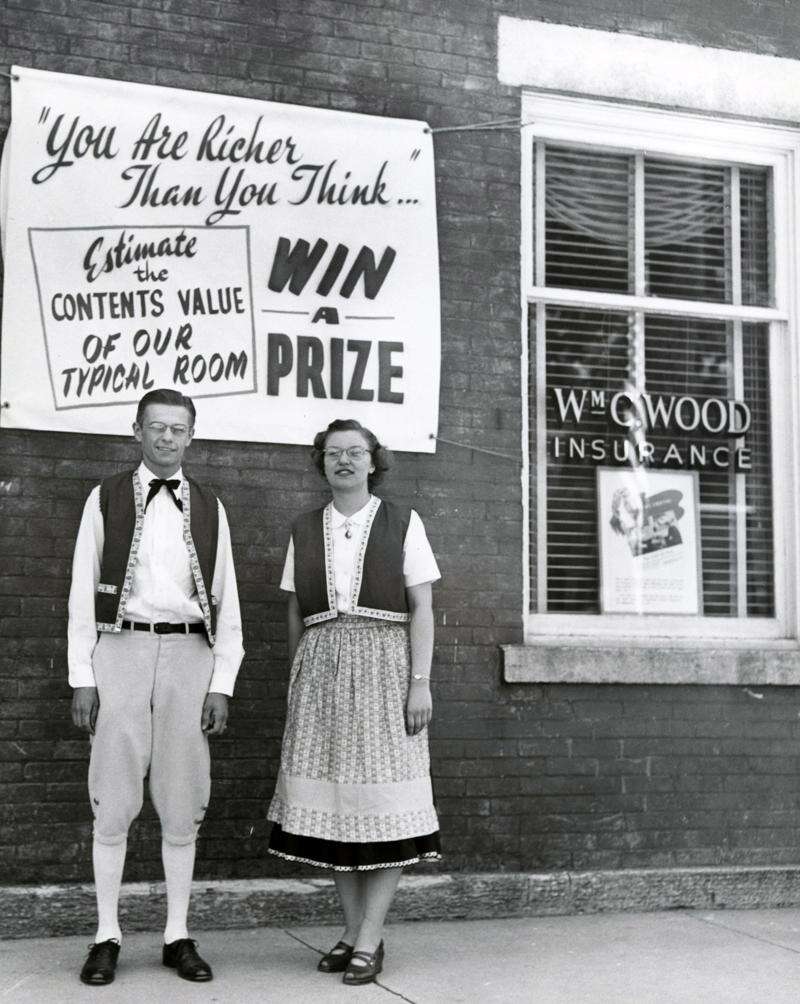 "You Are Richer
Than You Think..."
Estimate
the
CONTENTS VALUE
OF OUR
TYPICAL ROOM
WIN
A
PRIZE
WM C. WOOD
INSURANCE